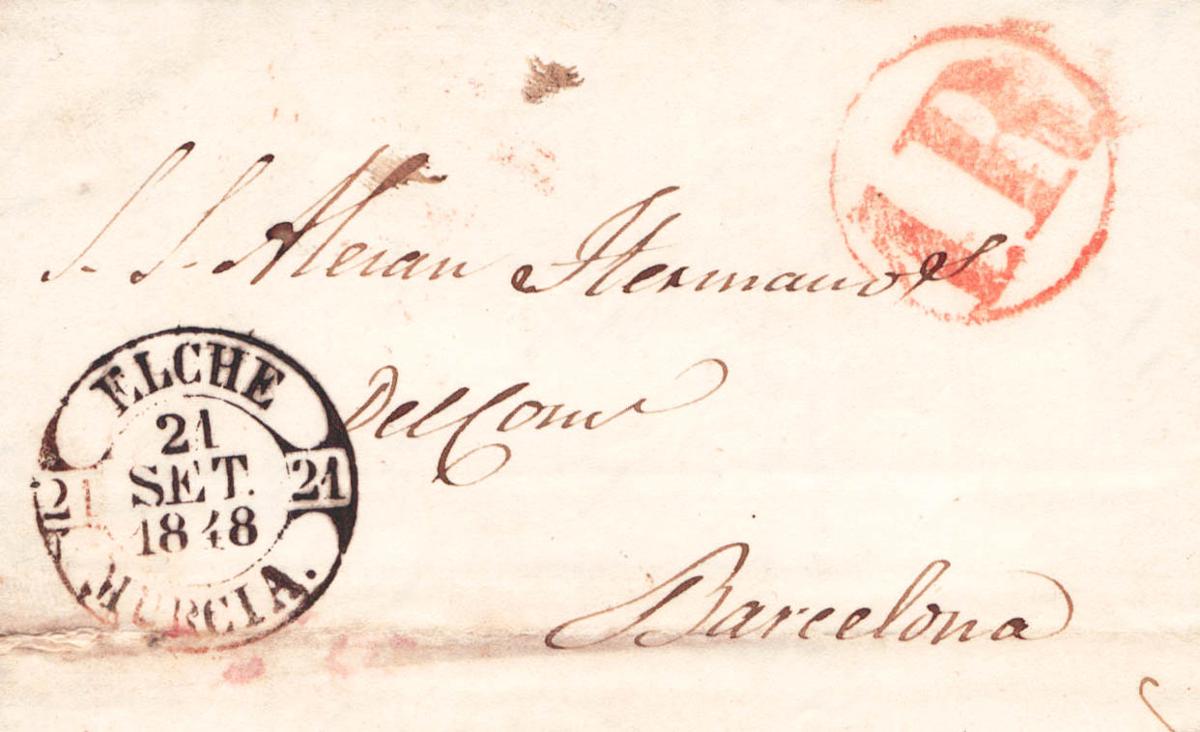 S. S. Hermanos
Del Com
Barcelona
ELCHE
21
SET.
1848
21
21
MURCIA.